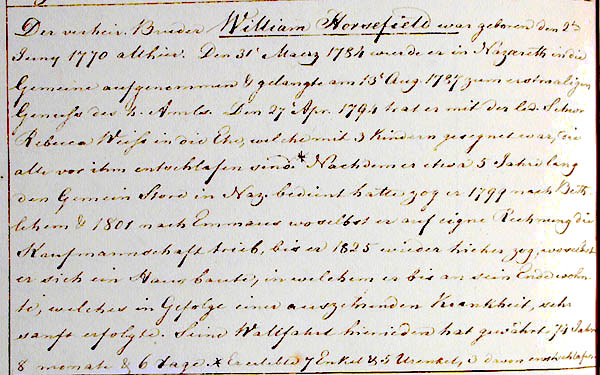 Der verheir. Bruder William Horsefield war geboren den 2ten
Juny 1770 allhier. Den 31t Maerz 1784 wurde er in Nazareth in die
Gemeine aufgenommen & gelangte am 13t Aug. 1787 zum erstmaligen
Genuss des h. Amles. Den 27 Apr. 1794 trat er mit der led. Schwr
Rebecca Weiss in die Ehe, welche mit 3 Kindern gesegnet war, die
alle vor ihm entschlafen sind. Nachdem er etwa 5 Jahre lang
den Gemein Store in Naz. bedient hatte zog er 1797 nach Beth
lehem & 1801 nach Emmaus woselbst er auf eigne Rechnung die
Kaufmannschaft trieb, bis er 1825 wieder hieher zog, woselbst
er sich ein Haus baute, in welchem er bis an sein Ende wohn
te, welches in Gefolge einer auszehrenden Krankheit, sehr
sanft erfolgte. Seine Wallfahrt hienieden hat gewährt 74 Jahre
8 monate & 6 Tage. x Er erlebte 7 Enkel & 5 Urenkel, davon entschlafen